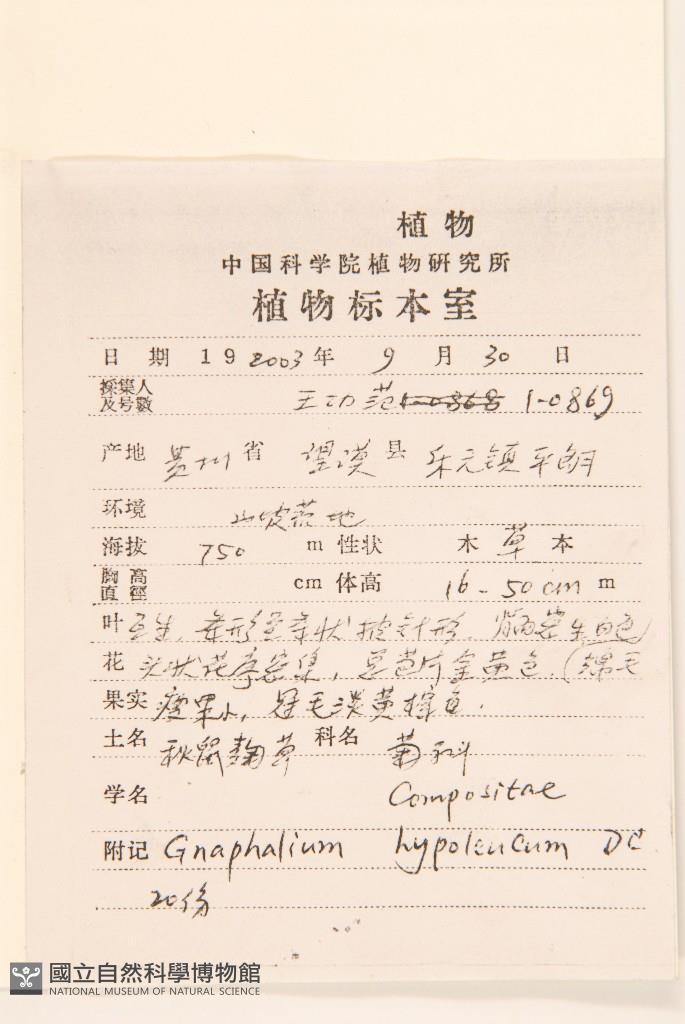 植物
中国科学院植物研究所
植物标本室
日期 19 2003年 9 月 30 日
採集人及号數 王功范 1-0868 1-0869
产地 贵州省 望谟县 乐元镇平朗
环境 山坡荒地
海拔 750 m 性状 木 草 本
胸高直徑 cm 体高 16-50cm m
叶 互生, 条形至条状披针形, 密生白色
花 头状花序密集, 总苞片金黄色. (绵毛
果实 瘦果小, 冠毛淡黄棕色.
土名 秋鼠麴草 科名 菊科
学名 Compositae
附记 Gnaphalium hypoleucum DC
20份
國立自然科學博物館
NATIONAL MUSEUM OF NATURAL SCIENCE